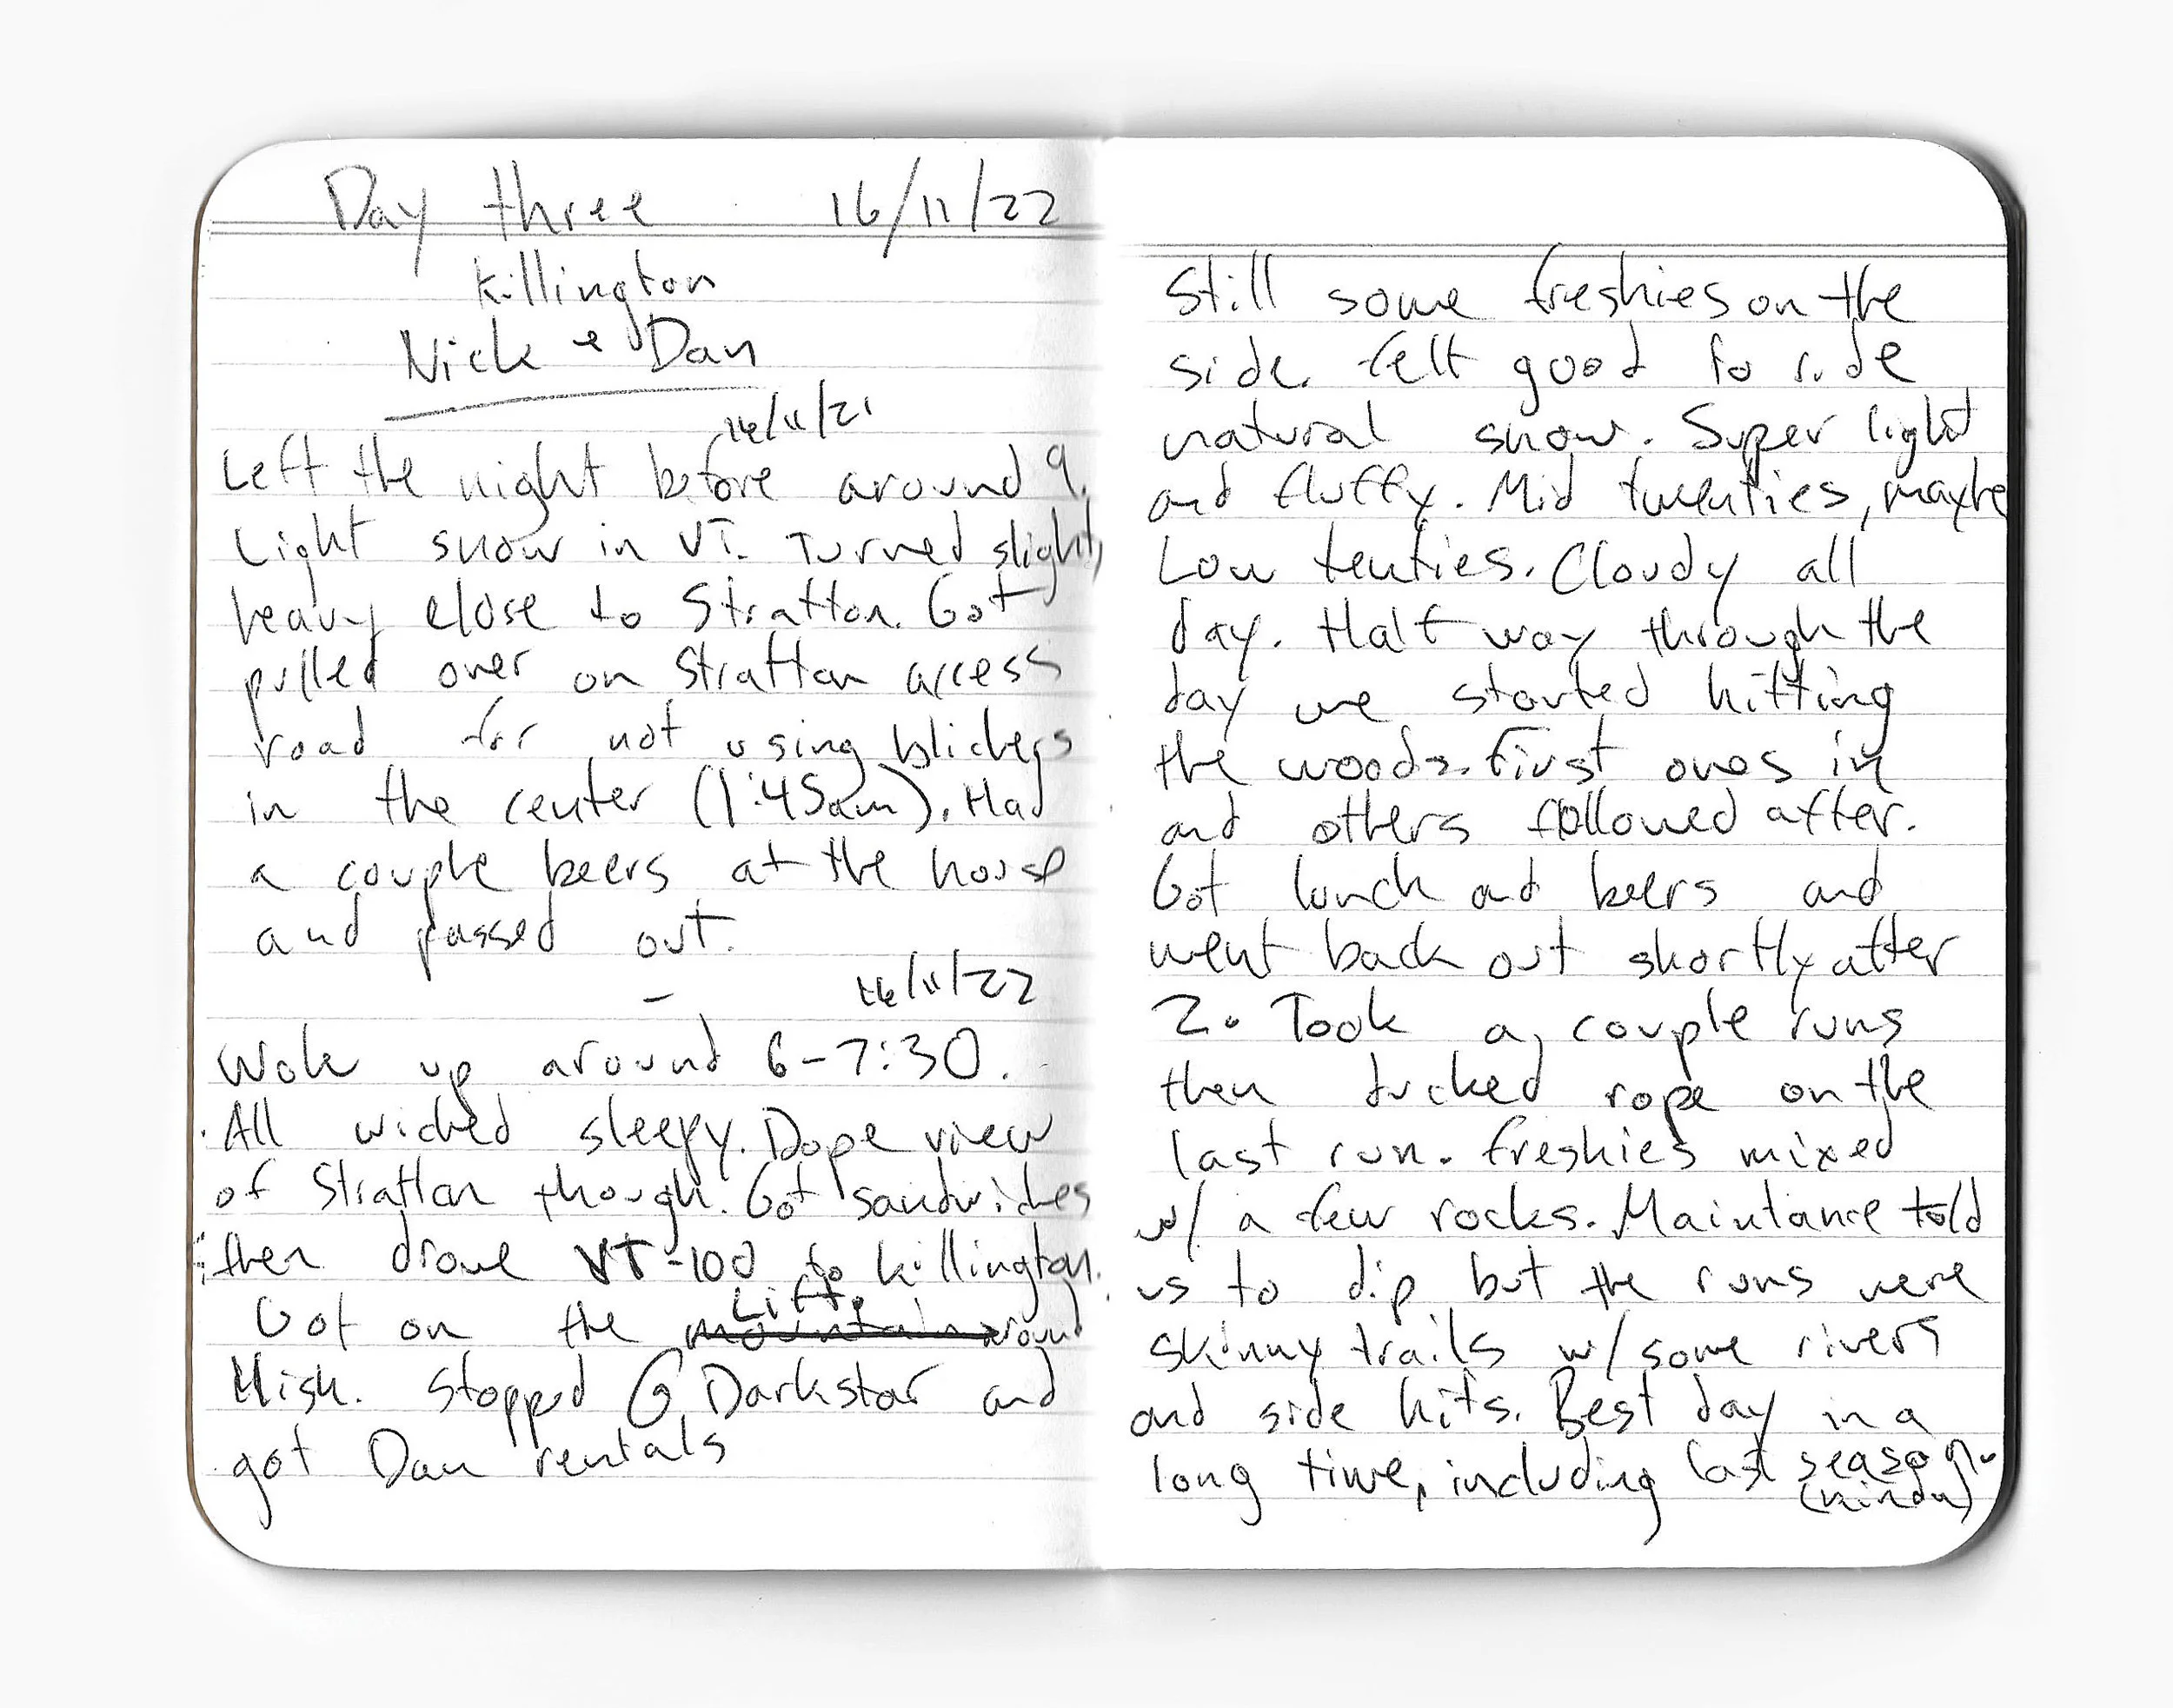 Day three 16/11/22
Killington
Nick & Dan
16/11/21
Left the night before around 9.
Light snow in VT. Turned slightly
heavy close to Stratton. Got
pulled over on Stratton access
road for not using blickers
in the center (1:45am). Had
a couple beers at the house
and passed out.
– 16/11/22
Wok up around 6-7:30.
All wicked sleepy. Dope view
of Stratton though. Got sandwiches
then drove VT-100 to Killington.
Lift
Got on the mountain around
Mish. Stopped @ Darkstar and
got Dan rentals
Still some freshies on the
side. felt good to ride
natural snow. Super light
and fluffy. Mid twenties, maybe
Low tenties. Cloudy all
day. Half way through the
day we started hitting
the woods. First ones in
and others followed after.
Got lunch and beers and
went back out shortly after
2. Took a couple runs
then ducked rope on the
last run. freshies mixed
w/ a few rocks. Maintance told
us to dip but the runs were
skinny trails w/ some rivers
and side hits. Best day in a
long time, including last season
(kinda)